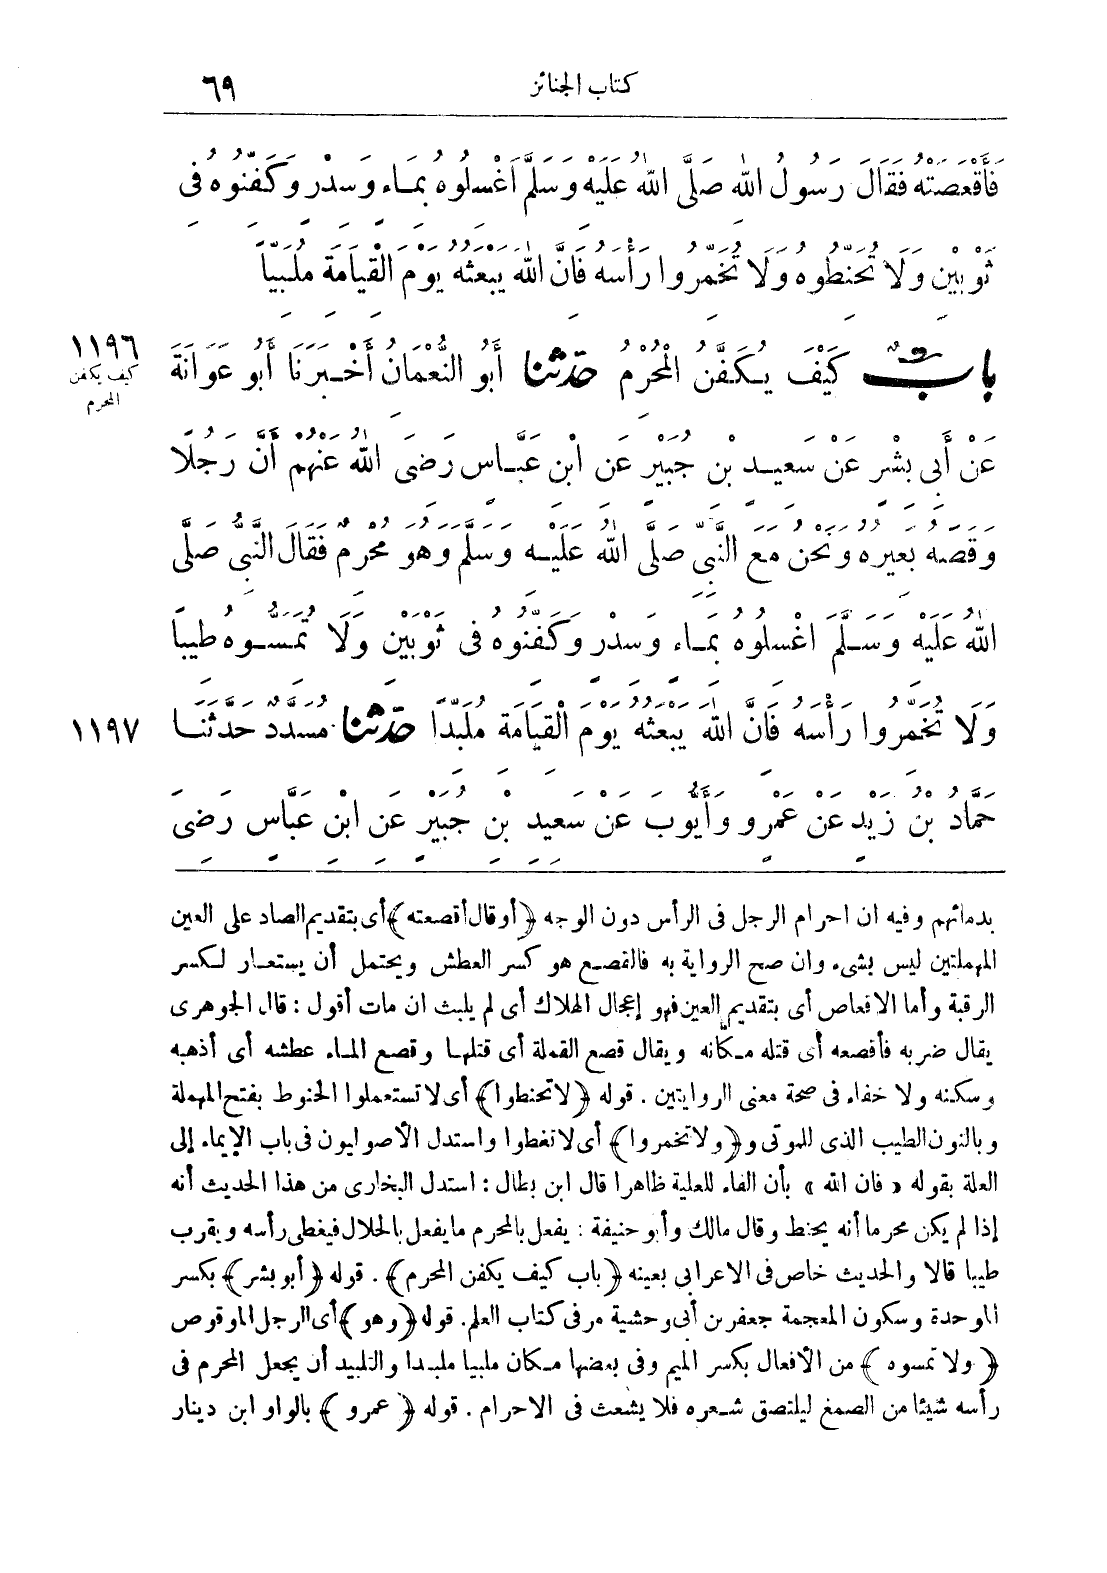 كتاب الجنائز ٦٩
فَأَقْعَصَتْهُ فَقَالَ رَسُولُ اللهِ صَلَّى اللهُ عَلَيْهِ وَسَلَّمَ اغْسِلُوهُ بِمَاءٍ وَسِدْرٍ وَكَفِّنُوهُ فِى
ثَوْبَيْنِ وَلَا تُحَنِّطُوهُ وَلَا تُخَمِّرُوا رَأْسَهُ فَإِنَّ اللهَ يَبْعَثُهُ يَوْمَ الْقِيَامَةِ مُلَبِّيًا
١١٩٦ كيف يكفن المحرم
بابٌ كَيْفَ يُكَفَّنُ الْمُحْرِمُ حَدَّثَنَا أَبُو النُّعْمَانِ أَخْبَرَنَا أَبُو عَوَانَةَ
عَنْ أَبِى بِشْرٍ عَنْ سَعِيدِ بْنِ جُبَيْرٍ عَنِ ابْنِ عَبَّاسٍ رَضِىَ اللهُ عَنْهُمْ أَنَّ رَجُلًا
وَقَصَهُ بَعِيرُهُ وَنَحْنُ مَعَ النَّبِىِّ صَلَّى اللهُ عَلَيْهِ وَسَلَّمَ وَهُوَ مُحْرِمٌ فَقَالَ النَّبِىُّ صَلَّى
اللهُ عَلَيْهِ وَسَلَّمَ اغْسِلُوهُ بِمَاءٍ وَسِدْرٍ وَكَفِّنُوهُ فِى ثَوْبَيْنِ وَلَا تُمِسُّوهُ طِيبًا
١١٩٧ وَلَا تُخَمِّرُوا رَأْسَهُ فَإِنَّ اللهَ يَبْعَثُهُ يَوْمَ الْقِيَامَةِ مُلَبِّدًا حَدَّثَنَا مُسَدَّدٌ حَدَّثَنَا
حَمَّادُ بْنُ زَيْدٍ عَنْ عَمْرٍو وَأَيُّوبَ عَنْ سَعِيدِ بْنِ جُبَيْرٍ عَنِ ابْنِ عَبَّاسٍ رَضِىَ
بدمائهم وفيه ان احرام الرجل فى الرأس دون الوجه ﴿أو قال أقصعته﴾ أى بتقديم الصاد على العين
المهملتين ليس بشىء وان صح الرواية به فالقصع هو كسر العطش ويحتمل أن يستعار لكسر
الرقبة وأما الاقعاص أى بتقديم العين فهو إعجال الهلاك أى لم يلبث ان مات أقول : قال الجوهرى
يقال ضربه فأقصعه أى قتله مكانه ويقال قصع القملة أى قتلها وقصع الماء عطشه أى أذهبه
وسكنه ولا خفاء فى صحة معنى الروايتين . قوله ﴿لا تحنطوا﴾ أى لا تستعملوا الحنوط بفتح المهملة
وبالنون الطيب الذى للموتى و﴿ولا تخمروا﴾ أى لا تغطوا واستدل الأصوليون فى باب الإيماء إلى
العلة بقوله « فان الله » بأن الفاء للعلية ظاهرا قال ابن بطال : استدل البخارى من هذا الحديث أنه
إذا لم يكن محرما أنه يحنط وقال مالك وأبو حنيفة : يفعل بالمحرم ما يفعل بالحلال فيغطى رأسه ويقرب
طيبا قالا والحديث خاص فى الاعرابى بعينه ﴿باب كيف يكفن المحرم﴾ . قوله ﴿أبو بشر﴾ بكسر
الموحدة وسكون المعجمة جعفر بن أبى وحشية مر فى كتاب العلم. قوله ﴿وهو﴾ أى الرجل الموقوص
﴿ولا تمسوه﴾ من الأفعال بكسر الميم وفى بعضها مكان ملبيا ملبدا والتلبيد أن يجعل المحرم فى
رأسه شيئا من الصمغ ليلتصق شعره فلا يشعث فى الاحرام . قوله ﴿عمرو﴾ بالواو ابن دينار